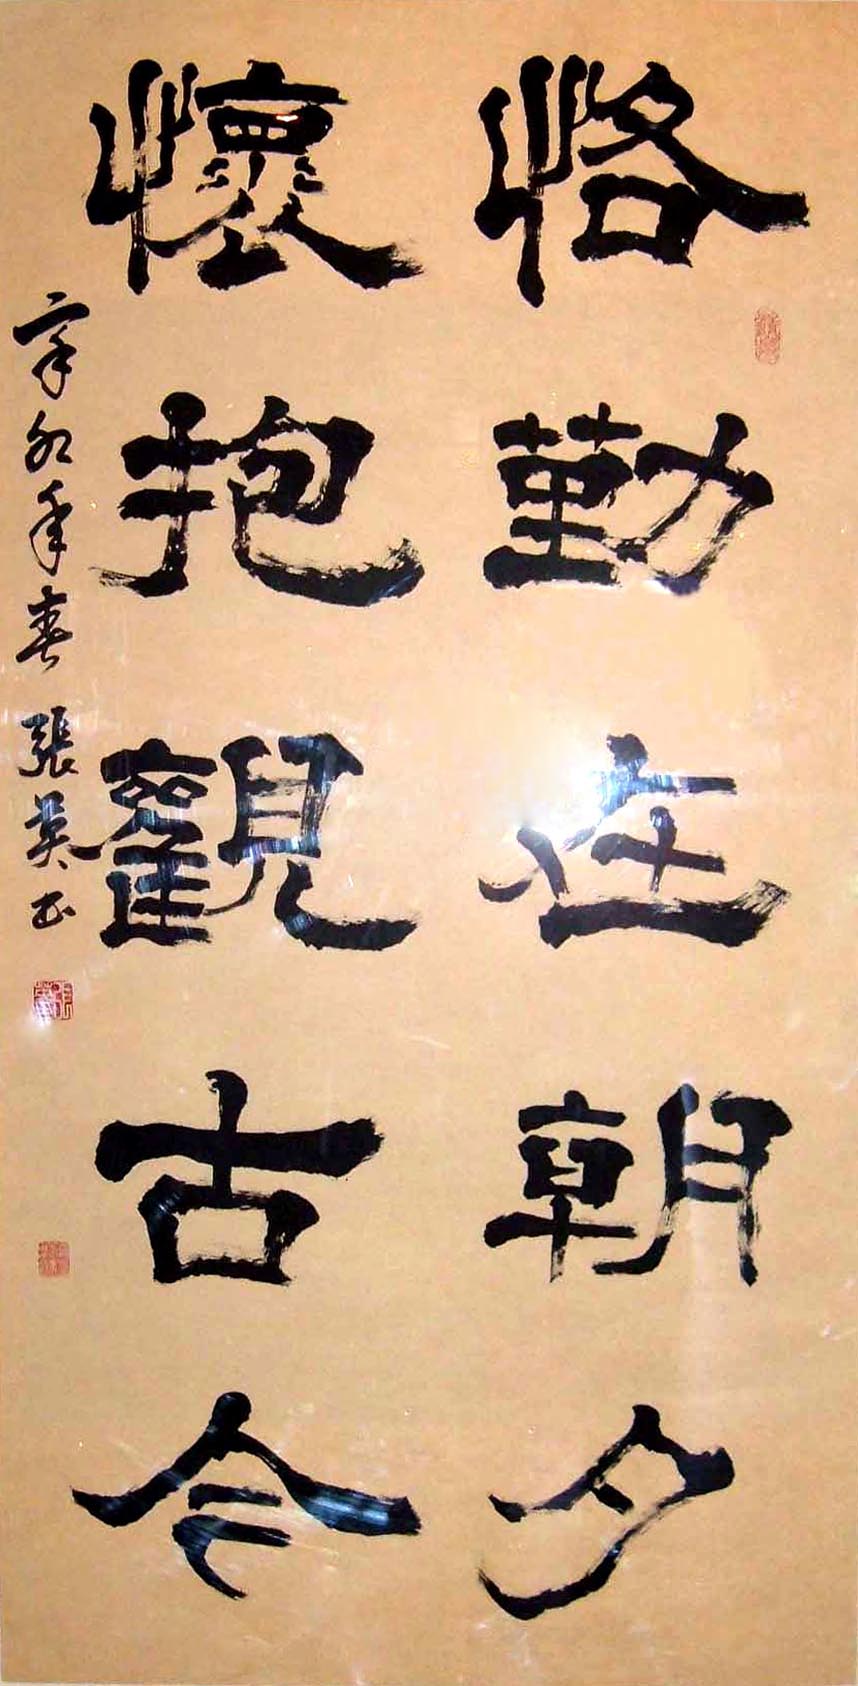 恪勤在朝夕
懷抱觀古今
辛卯年春 張英書